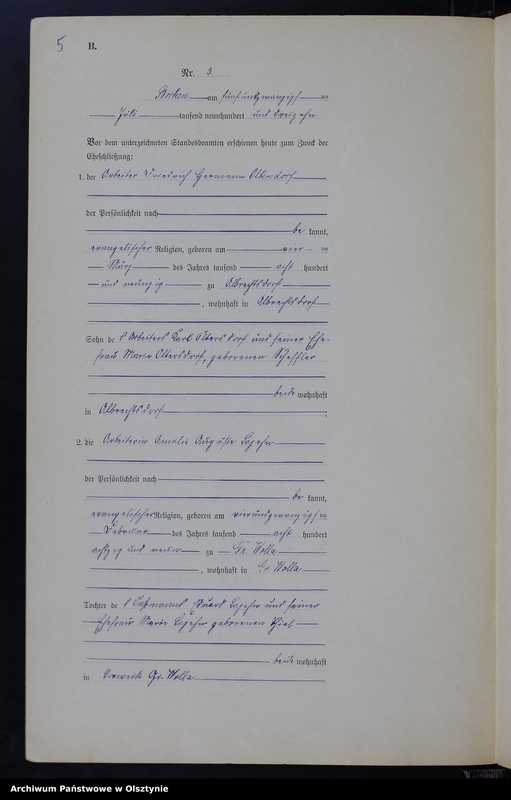 5
B.
Nr. 3
Borken am fünfundzwanzigsten
Juli tausend neunhundert und dreizehn
Vor dem unterzeichneten Standesbeamten erschienen heute zum Zweck der
Eheschließung:
1. der Arbeiter Friedrich Hermann Oltersdorf
der Persönlichkeit nach
be kannt,
evangelischer Religion, geboren am vier ten
März des Jahres tausend acht hundert
und neunzig zu Albrechtsdorf
, wohnhaft in Albrechtsdorf
Sohn de s Arbeiters Karl Oltersdorf und seiner Ehe-
frau Maria Oltersdorf, geborenen Scheffler
beide wohnhaft
in Albrechtsdorf ;
2. die Arbeiterin Amalie Auguste
der Persönlichkeit nach
be kannt,
evangelischer Religion, geboren am vierundzwanzigsten
Februar des Jahres tausend acht hundert
achtzig und neun zu Gr. Wolla
, wohnhaft in Gr. Wolla
Tochter de s Eduard und seiner
Ehefrau Maria geborenen
beide wohnhaft
in Vorwerk Gr. Wolla
Archiwum Państwowe w Olsztynie